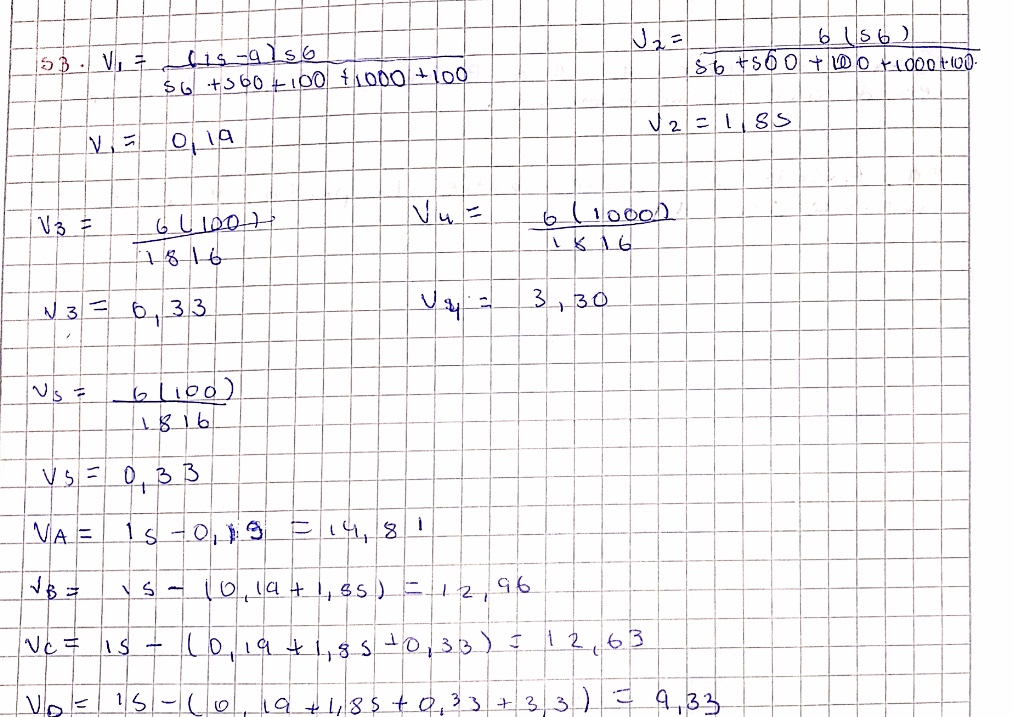 53. V₁ = (15-9)56 / 56+560+100+1000+100
V₂ = 6(56) / 56+560+100+1000+100
V₁ = 0,19
V₂ = 1,85
V3 = 6(100) / 1816
V4 = 6(1000) / 1816
V3 = 0,33
V4 = 3,30
V5 = 6(100) / 1816
V5 = 0,33
VA = 15-0,19 = 14,81
VB = 15-(0,19+1,85) = 12,96
VC = 15-(0,19+1,85+0,33) = 12,63
VD = 15-(0,19+1,85+0,33+3,3) = 9,33